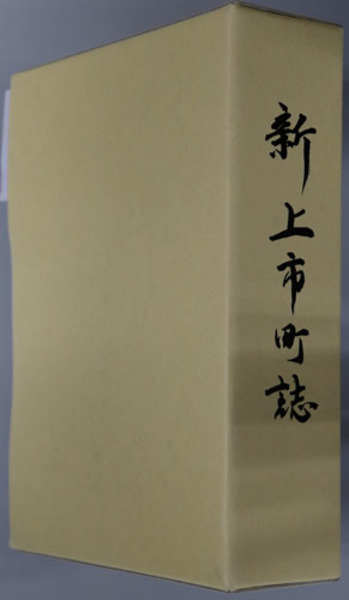 新上市町誌